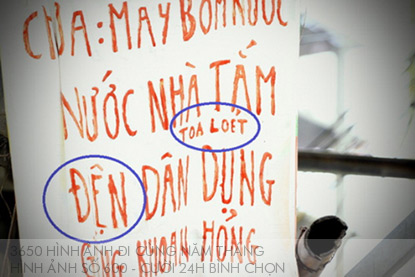 CHỮA: MÁY BƠM NƯỚC
NƯỚC NHÀ TẮM
TOA LOÉT
ĐỆN DÂN DỤNG
NHANH HỎNG
3650 HÌNH ẢNH ĐI CÙNG NĂM THÁNG
HÌNH ẢNH SỐ 600 - CƯỜI 24H BÌNH CHỌN